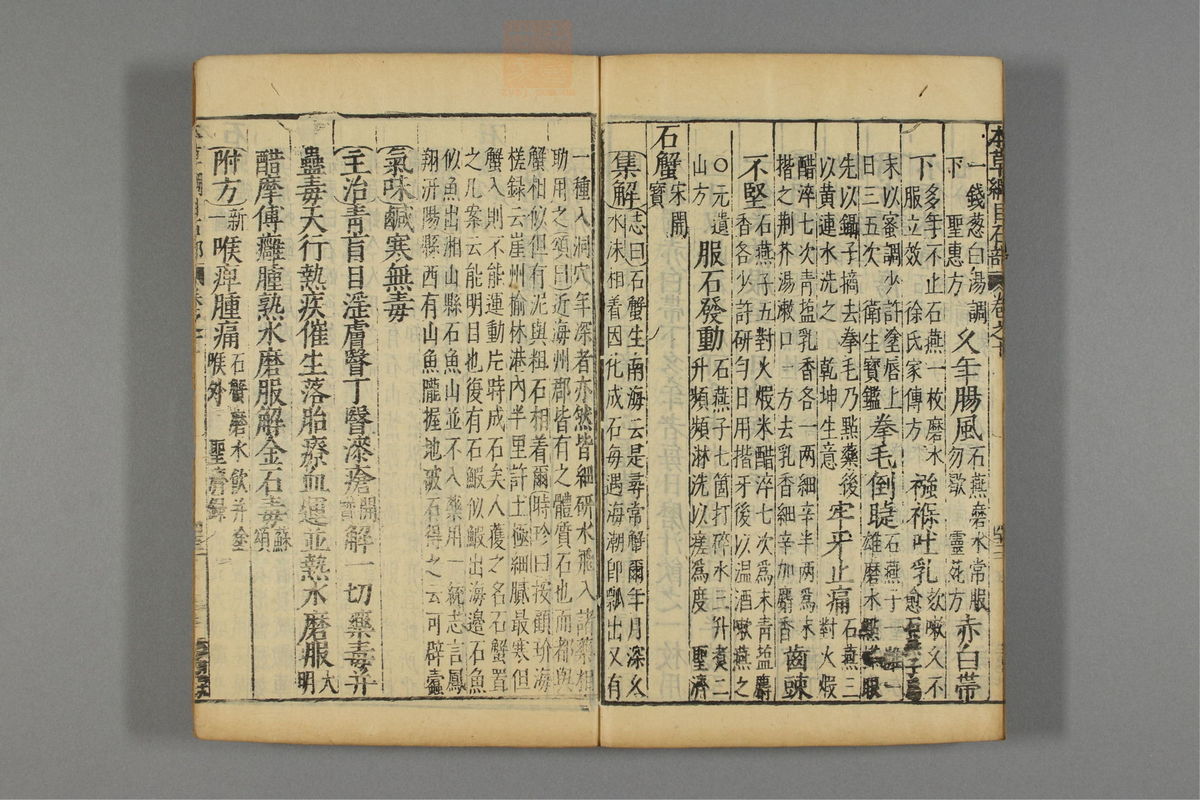 本草綱目石部 卷之十
一錢葱白湯調
下 聖惠方
久年腸風
石燕磨水常服
勿歇 靈苑方
赤白帶
下
多年不止石燕一枚磨水
服立效 徐氏家傳方
襁褓吐乳
咳嗽久不
愈石燕子
末以蜜調少許塗唇上
日三五次 衛生寶鑑
拳毛倒睫
石燕子一雌一
雄磨水點搽眼
先以鑷子摘去拳毛乃點藥後
以黄連水洗之 乾坤生意
牢牙止痛
石燕三
對火煅
醋淬七次青盬乳香各一兩細辛半兩爲末
揩之荆芥湯漱口 一方去乳香細辛加麝香
齒疎
不堅
石燕子五對火煅米醋淬七次爲末青盬麝
香各少許研勻日用揩牙後以温酒嗽嚥之
○元遺
山方
服石發動
石燕子七箇打碎水三升煑二
升頻頻淋洗以瘥爲度 聖濟
石蟹
宋開
寶
集解
志曰石蟹生南海云是尋常蟹爾年月深久
水沫相着因化成石每遇海潮卽飄出又有
一種入洞穴年深者亦然皆細研水飛入諸藥相
助用之頌曰近海州郡皆有之體質石也而都與
蟹相似但有泥與粗石相着爾時珍曰按顧玠海
槎録云崖州榆林港內半里許土極細膩最寒但
蟹入則不能運動片時成石矣人獲之名石蟹置
之几案云能明目也復有石蝦似蝦出海邊石魚
似魚出湘山縣石魚山並不入藥用一統志言鳳
翔汧陽縣西有山魚隴掘地破石得之云可辟蠧
氣味鹹寒無毒
主治青盲目淫膚瞖丁瞖漆瘡
開
寶
解一切藥毒并
蠱毒天行熱疾催生落胎療血暈並熱水磨服
大
明
醋摩傅癰腫熟水磨服解金石毒
蘇
頌
附方
新
一
喉痺腫痛
石蟹磨水飲并塗
喉外 聖濟録